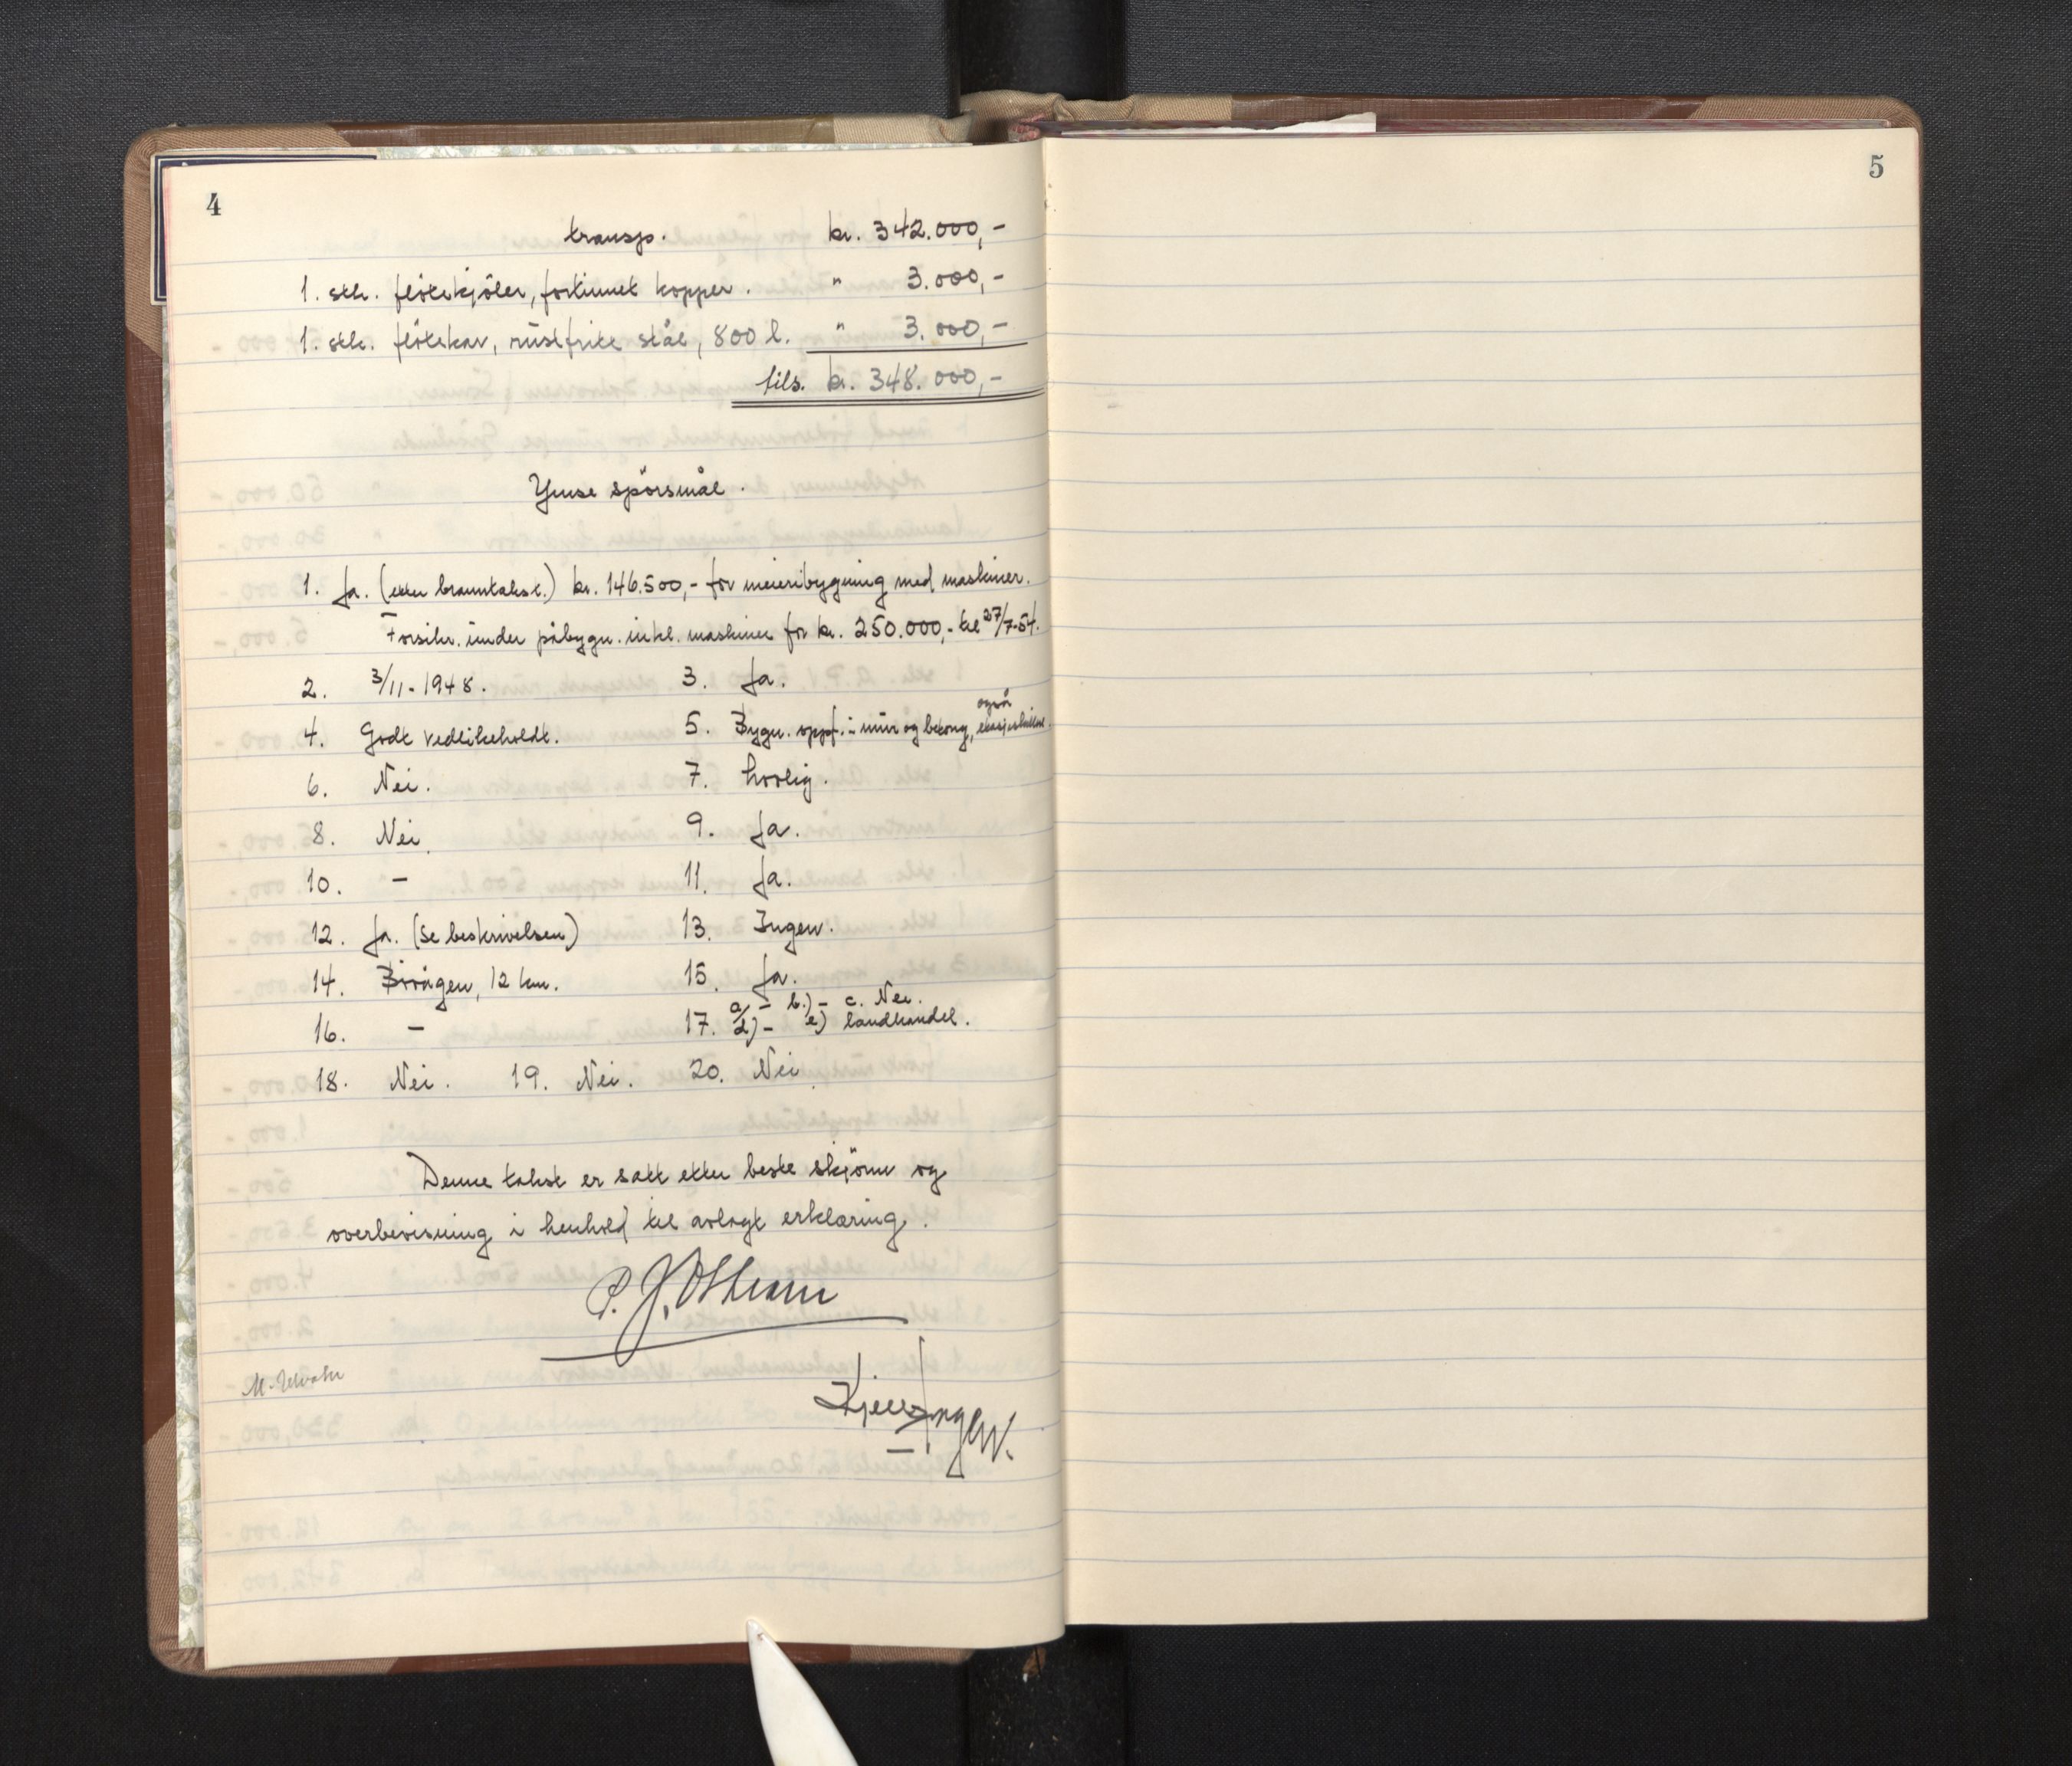 4
transp. kr. 342.000,-
1. stk. flötekjöler, fortinnet kopper. " 3.000,-
1. stk. flötekar, rüstfritt stål, 800 l. " 3.000,-
tils. kr. 348.000,-
Ymse spörsmål.
1. Ja. (etter branntakst.) kr. 146.500,- for meieribygning med maskiner.
Forsikr. ünder påbygn. inkl. maskiner for kr. 250.000,- til 27/7-54.
2. 3/11-1948. 3. Ja.
også
4. Godt vedlikeholdt. 5. Bygn. oppf. i mür og betong,
6. Nei. 7. Årlig.
8. Nei. 9. Ja.
10. - 11. Ja.
12. Ja. (Se beskrivelsen) 13. Ingen.
14. Svågen, 12 km. 15. Ja.
a) - b.) - c. Nei.
16. - 17. d) - e) landhandel.
18. Nei. 19. Nei. 20. Nei.
Denne takst er satt etter beste skjönn og
overbevisning i henhold til avlagt erklæring.
P. J.
5